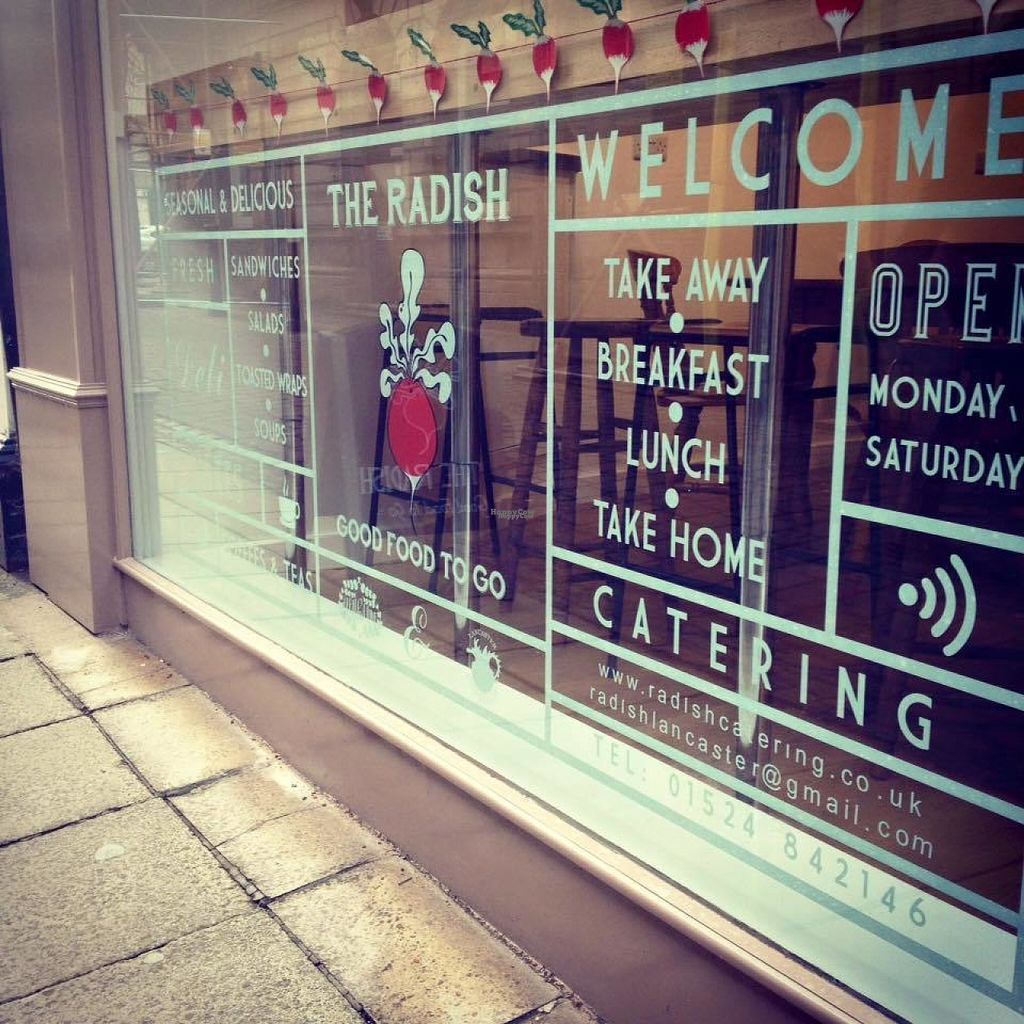 SEASONAL & DELICIOUS
FRESH
Deli
SANDWICHES
SALADS
TOASTED WRAPS
SOUPS
& TEAS
THE RADISH
THE RADISH
GOOD FOOD TO GO
&
HappyCow
WELCOME
TAKE AWAY
BREAKFAST
LUNCH
TAKE HOME
OPE
MONDAY,
SATURDAY
CATERING
www.radishcatering.co.uk
radishlancaster@gmail.com
TEL: 01524 842146